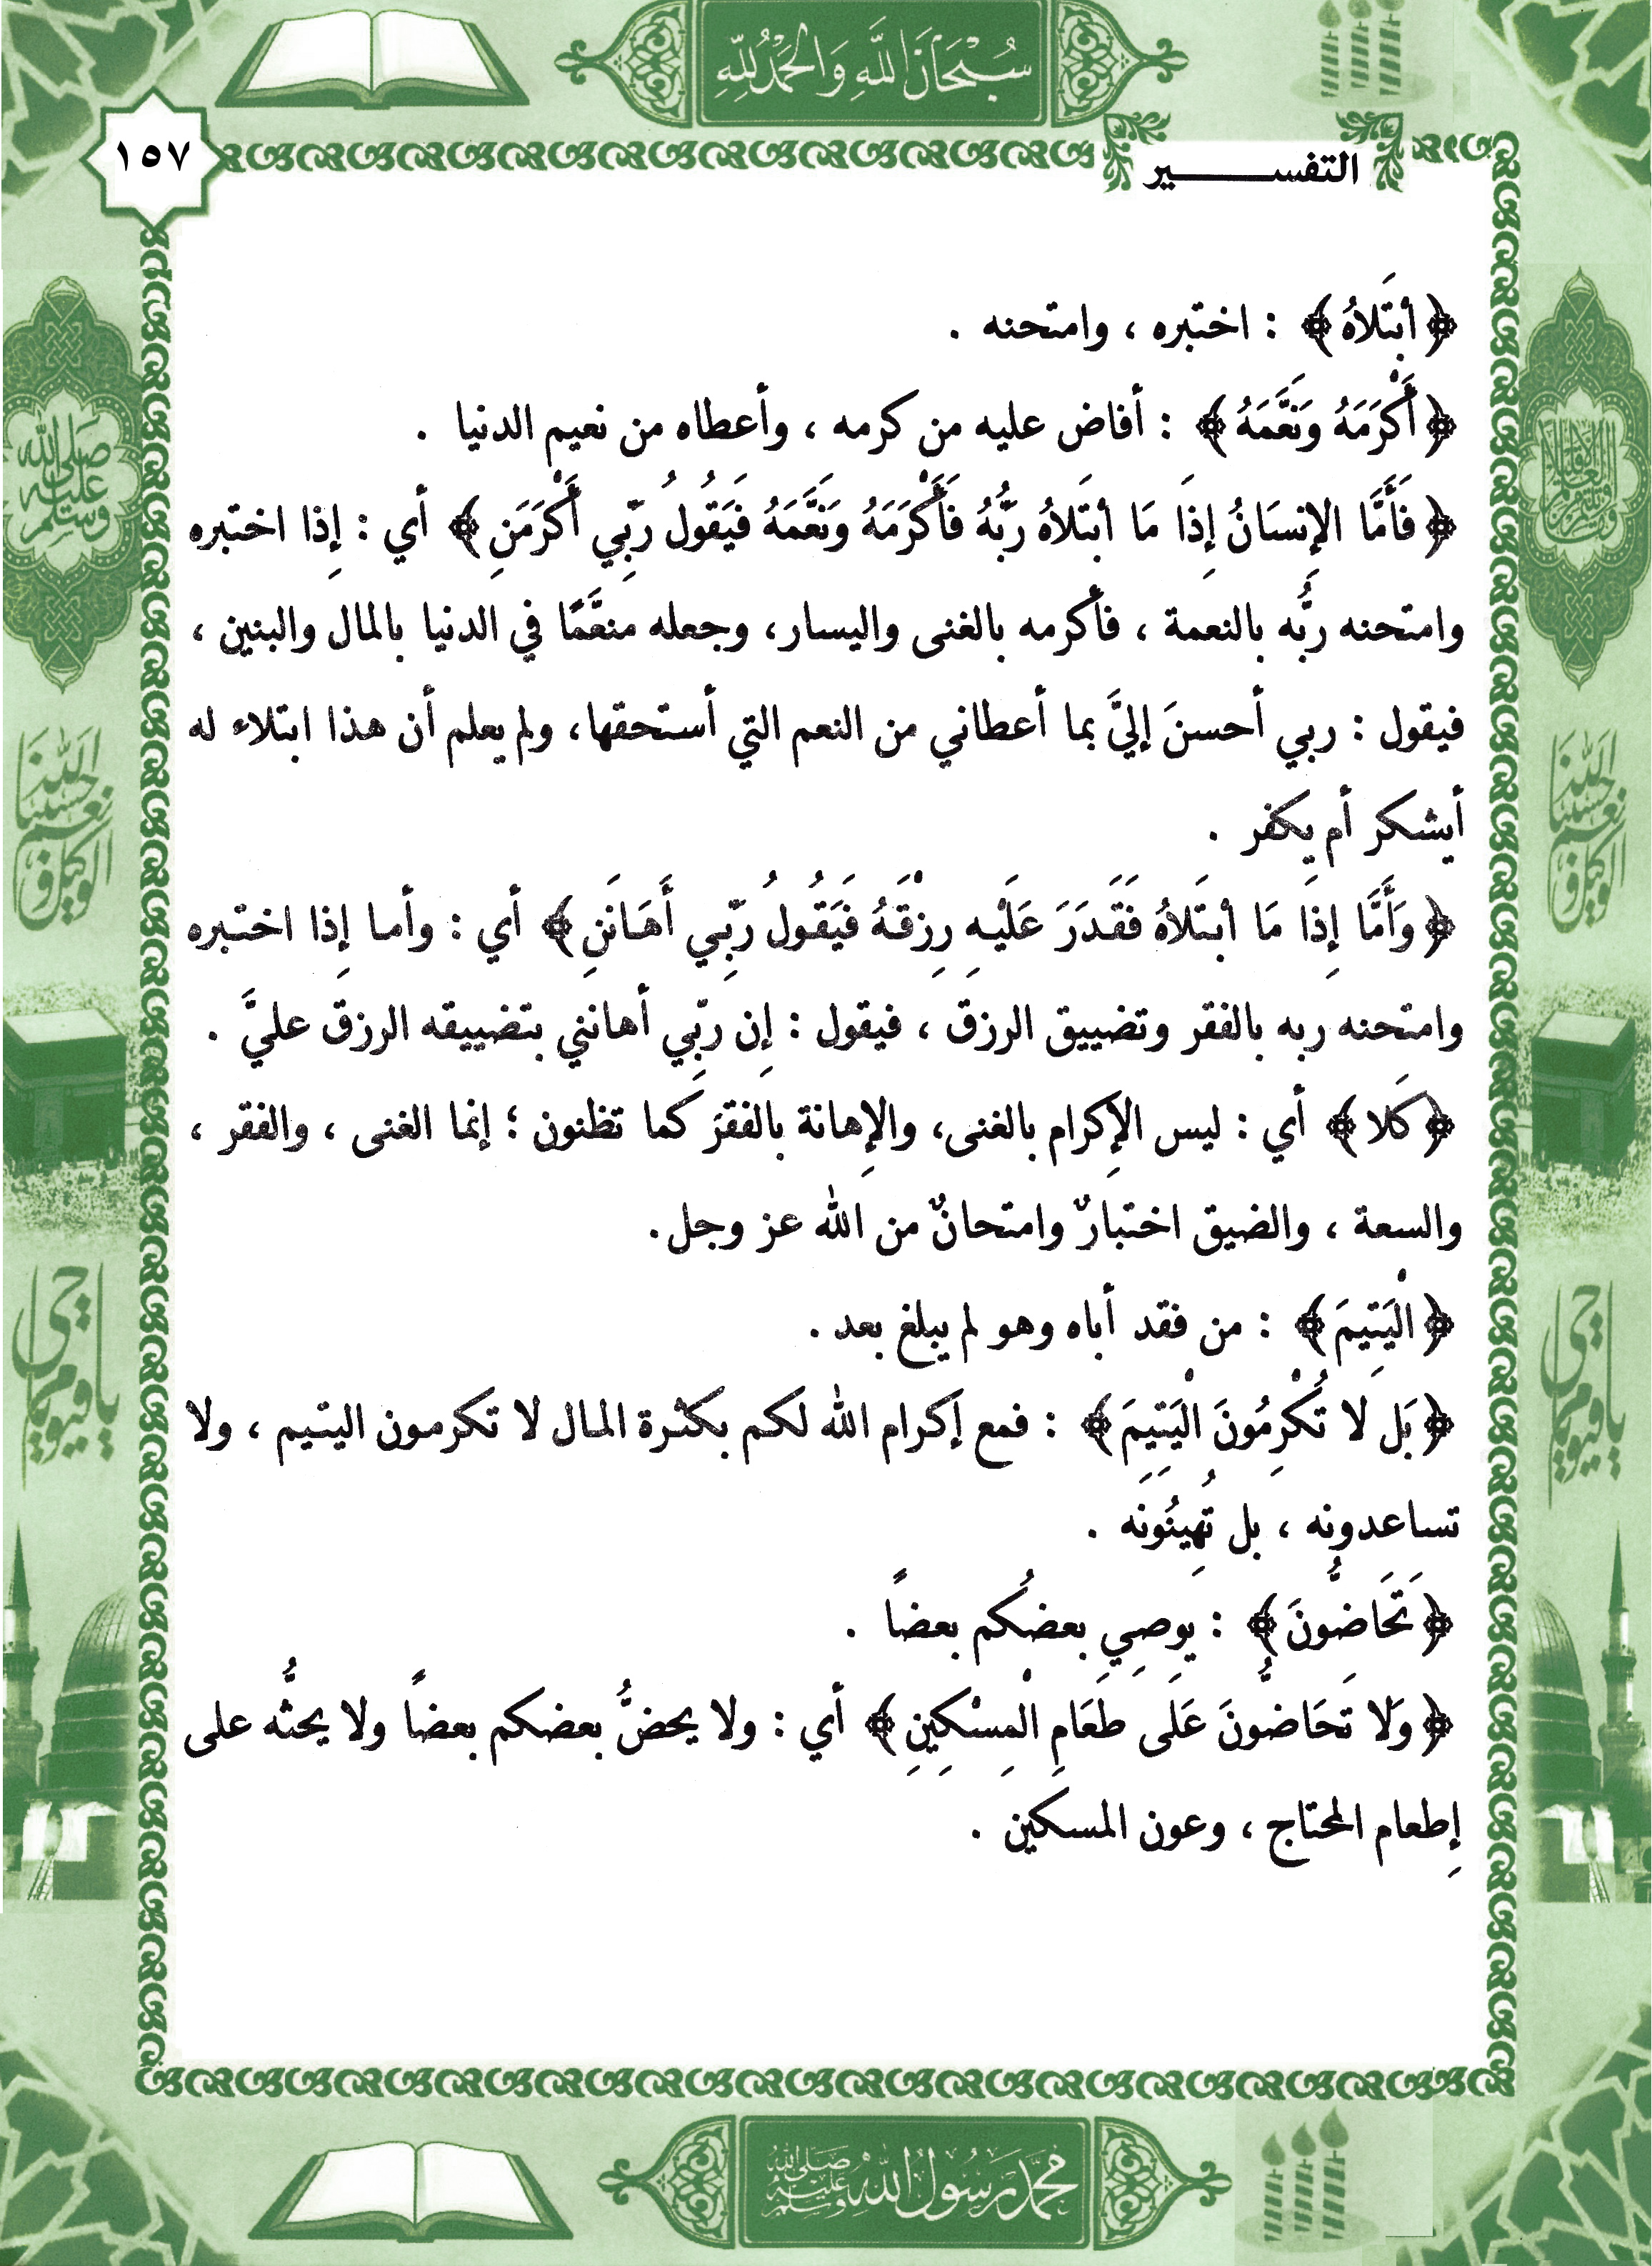 سُبْحَانَ اللَّهِ وَالْحَمْدُ لِلَّهِ
التفسير
١٥٧
﴿أبتَلاهُ﴾ : اختبره ، وامتحنه .
﴿أَكْرَمَهُ وَنَعَّمَهُ﴾ : أفاض عليه من كرمه ، وأعطاه من نعيم الدنيا .
﴿فَأَمَّا الإِنسَانُ إِذَا مَا ابتَلاهُ رَبُّهُ فَأَكْرَمَهُ وَنَعَّمَهُ فَيَقُولُ رَبِّي أَكْرَمَنِ﴾ أي : إِذا اختبره
وامتحنه ربُّه بالنعمة ، فأكرمه بالغنى واليسار، وجعله منعَّمًا في الدنيا بالمال والبنين ،
فيقول : ربي أحسنَ إليَّ بما أعطاني من النعم التي أستحقها، ولم يعلم أن هذا ابتلاء له
أيشكر أم يكفر .
﴿وَأَمَّا إِذَا مَا أبتَلاهُ فَقَدَرَ عَلَيْهِ رِزْقَهُ فَيَقُولُ رَبِّي أَهَانَنِ﴾ أي : وأما إِذا اختبره
وامتحنه ربه بالفقر وتضييق الرزق ، فيقول : إِن ربِّي أهانني بتضييقه الرزق عليَّ .
﴿كَلا﴾ أي : ليس الإِكرام بالغنى، والإِهانة بالفقرَ كما تظنون ؛ إنما الغنى ، والفقر ،
والسعة ، والضيق اختبارٌ وامتحانٌ من الله عز وجل.
﴿الْيَتِيمَ﴾ : من فقد أباه وهو لم يبلغ بعد .
﴿بَل لا تُكْرِمُونَ الْيَتِيمَ﴾ : فمع إكرام الله لكم بكثرة المال لا تكرمون اليتيم ، ولا
تساعدونِه ، بل تُهِينُونَه .
﴿تَحَاضُّونَ﴾ : يوصِي بعضُكم بعضاً .
﴿وَلا تَحَاضُّونَ عَلَى طَعَامِ الْمِسْكِينِ﴾ أي : ولا يحضُّ بعضكم بعضاً ولا يحثُّه على
إِطعام المحتاج ، وعون المسكين .
محمد رسول الله صلى الله عليه وسلم
صلى الله عليه وسلم
حسبنا الله ونعم الوكيل
حسبنا الله ونعم الوكيل
يا حي يا قيوم
يا حي يا قيوم